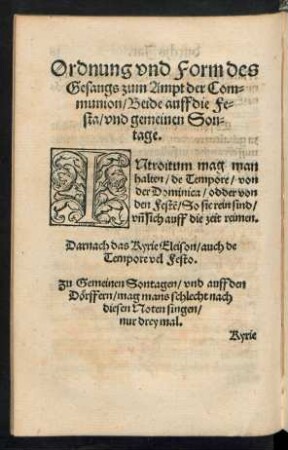 Ordnung vnd Form des
Gesangs zum Ampt der Com-
munion/Beide auff die Fe-
sta/vnd gemeinen Son-
tage.
INtroitum mag man
halten/de Tempore/von
der Dominica/odder von
den Festē/So sie rein sind/
vñ sich auff die zeit reimen.
Darnach das Kyrie Eleison/auch de
Tempore vel Festo.
Zu Gemeinen Sontagen/vnd auff den
Dörffern/mag mans schlecht nach
diesen Noten singen/
nur drey mal.
Kyrie